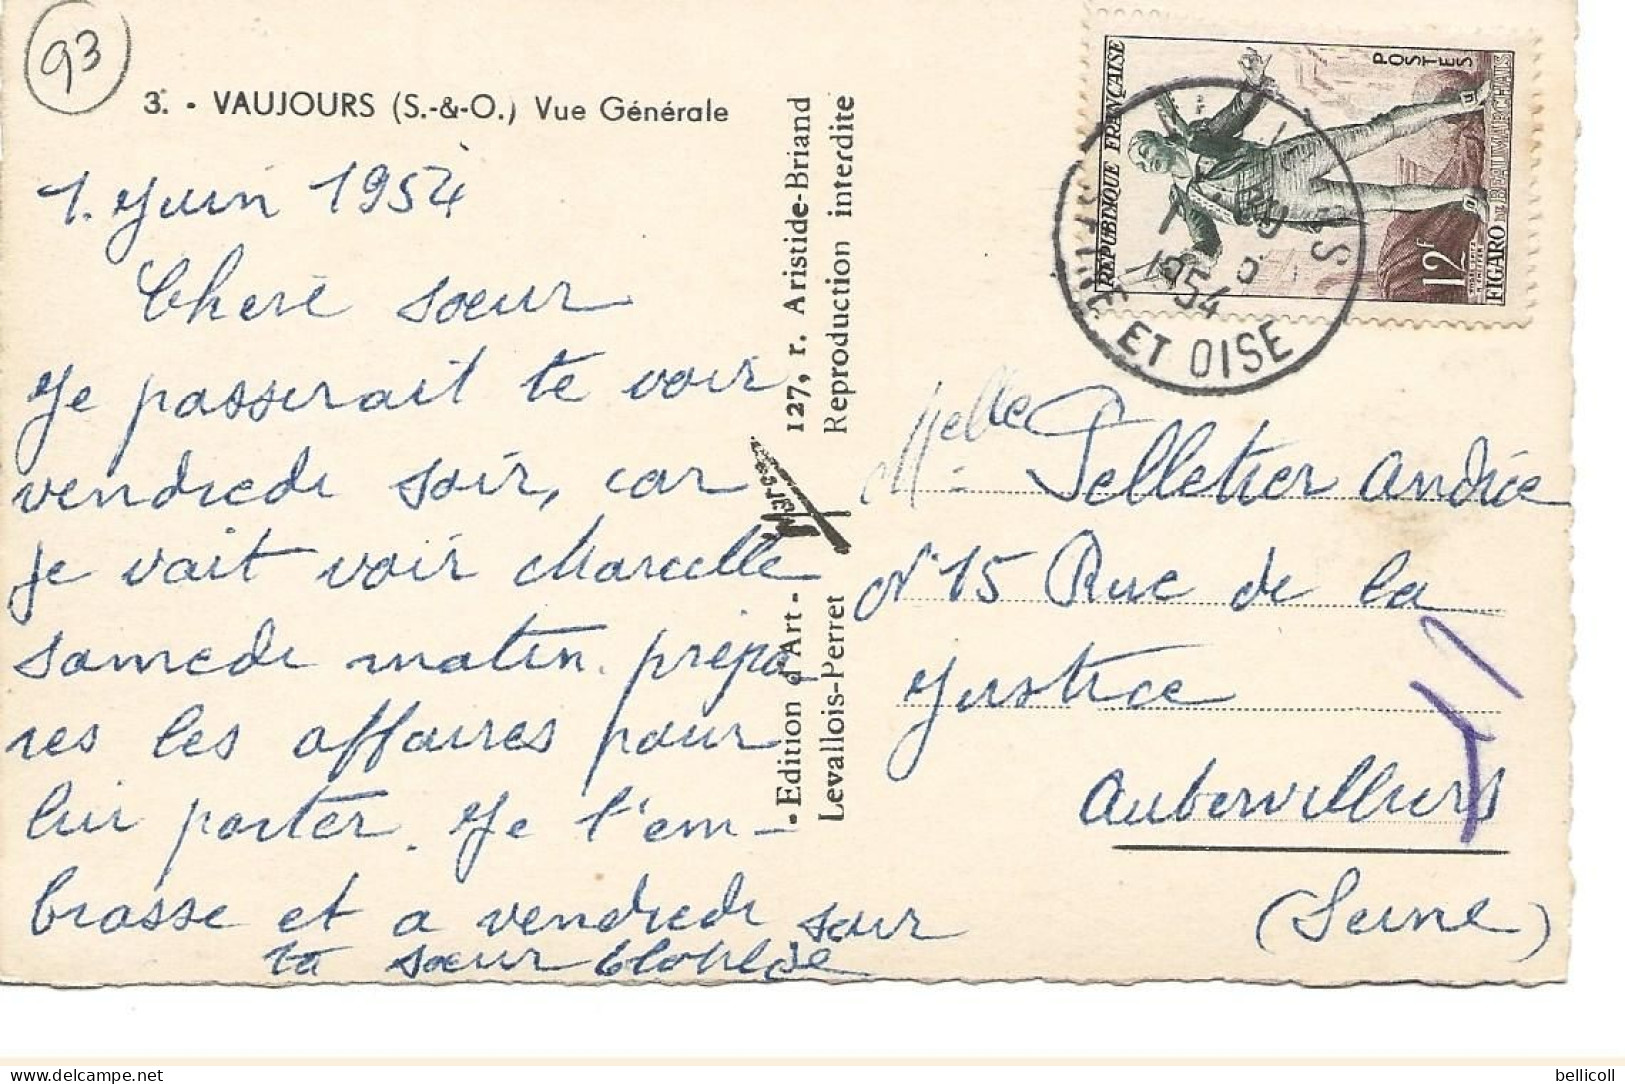 93
3. - VAUJOURS (S.-&-O.) Vue Générale
1. Juin 1954
Cheré sœur
Je passerait te voir
vendredi soir, car
je vait voir Marcelle
samedi matin. prépa
res les affaires pour
lui porter. Je t'em-
brasse et a vendredi soir
ta sœur Clotilde
- Edition d'Art - Marcel 127, r. Aristide-Briand
Levallois-Perret Reproduction interdite
REPUBLIQUE FRANÇAISE
POSTES
12f
FIGARO DE BEAUMARCHAIS
1954
SEINE ET OISE
Melle Pelletier Andrée
N° 15 Rue de la
Justice
Aubervilliers
(Seine)
delcampe.net
bellicoll